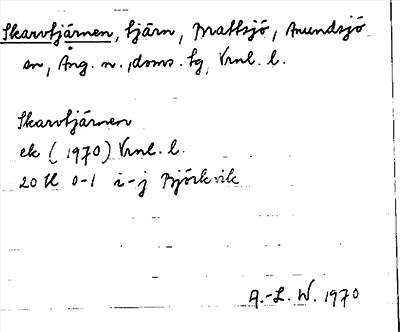 Skarvtjärnen, tjärn, Brattsjö, Anundsjö
sn, Ång. n., doms. tg, Vrnl. l.
Skarvtjärnen
ek (1970) Vrnl. l.
20 H 0-1 i-j Björkvik
A.-L. W. 1970